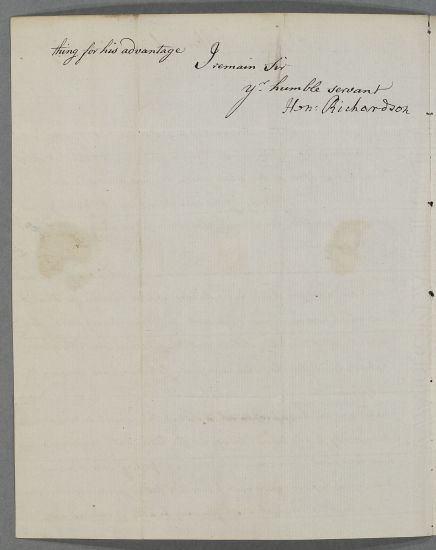 thing for his advantage
I remain Sir
yr humble servant
Hon: Richardson